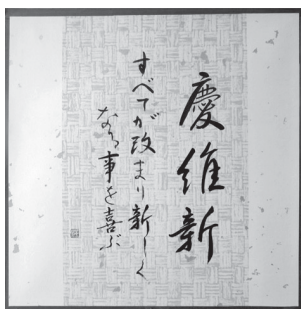 慶維新
すべてが改まり新しく
なる事を喜ぶ